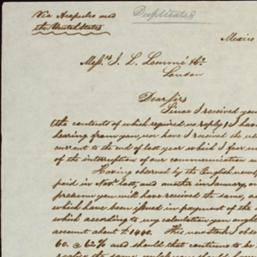 Via Acapulco and
the United States
Duplicate
Mexico
Mess.rs J. L. Lemmé & Co.
London
Dear Sirs
Since I received your
the contents of which required no reply, I have
hearing from you, nor have I received the
current to the end of last year which I fear
of the interruption of our communication
Having observed by the English news
paid in Nov.r last, and another in January, on
presume you will have received the same,
which have been issued in payment of the
which according to my calculation you ought
account about £ 1400. This new stock I
60. a 62% and should that continue to be